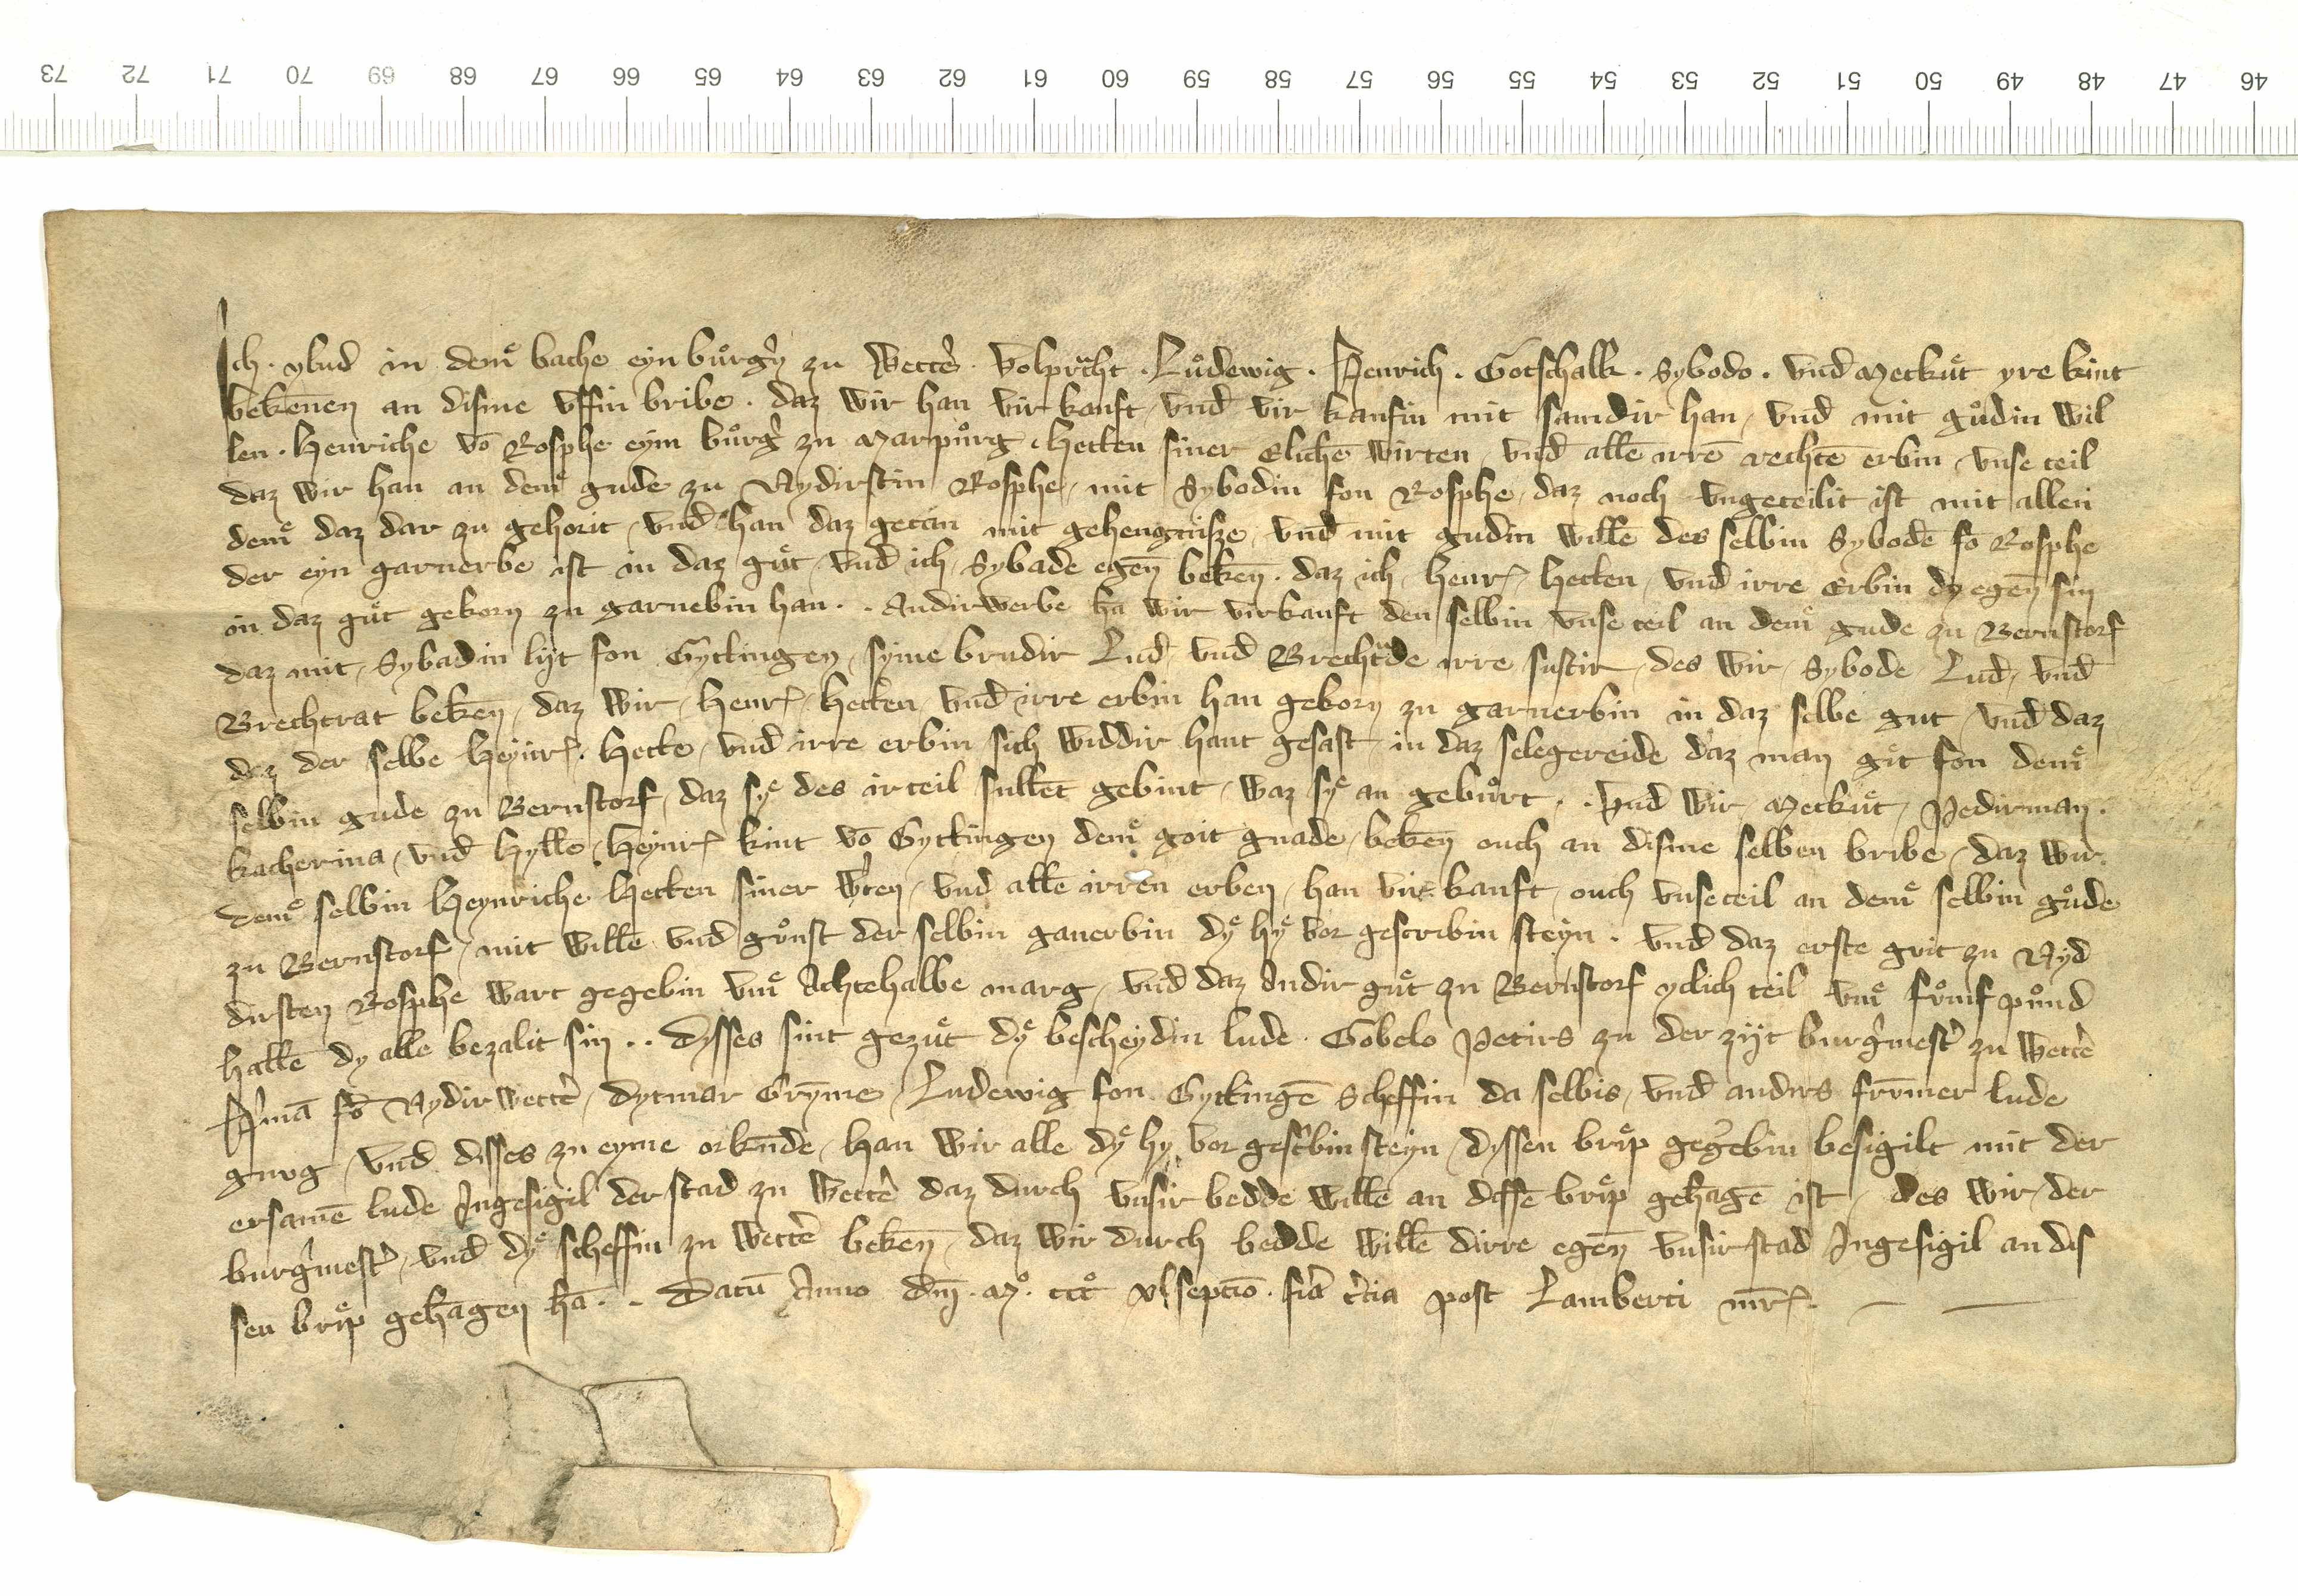 73 72 71 70 69 68 67 66 65 64 63 62 61 60 59 58 57 56 55 54 53 52 51 50 49 48 47 46
Ich · ylud in demͤ bache eyn bůrgẏ zu Wettˀ · Volpͣcht · Lůdewig · Henrich · Gotschalk · Sybodo · vnd Metkuͤt yre kint
bekēnen an disme vffin bribe · daz wir han vir kauft / vnd vir kaufin mit samdir han / vnd mit gůdin wil
len · Henriche vō Rosphe eym bůrgˀ zu Marpůrg · Hetten siner Elichē wirten / vnd allē irrē rechtē erbin / vnse teil
daz wir han an demͤ gude zu Nydirstin Rosphe / mit Sybodin fon Rosphe / daz noch vngeteilit ist mit allen
demͤ daz dar zu gehorit / vnd han daz getan mit gehengnisze / vnd mit gudin willē des selbin Sybodē fō Rosphe
der eyn garnerbe ist in daz guͤt / vnd ich / Sybade egēn bekēn · daz ich / Henr̄ / Hetten / vnd irre Erbin dy egēn sin
in daz guͤt gekorn zu garnebin han · · Andirwerbe hā wir virkauft den selbin vnse teil an demͤ gude zu Bernstorf
daz mit / Sybadin lijt fon Gyttingen / syme brudir Lud / vnd Brechtͣde irre sustir / des wir / Sybode Lud / vnd
Brechtrat bekēn / daz wir / Henr̄ / Hetten / vnd irre erbin han gekorn zu garnerbin in daz selbe gut / vnd daz
daz der selbe Heynr̄ · Hette / vnd irre erbin sich widdir hant gesast / in daz selegereide daz man git fon demͤ
selbin gude zu Bernstorf / daz syͤ des ir teil sullēt gebint / waz syͤ an gebůrt · · Vnd wir / Metkuͤt / Pedirman ·
katherina / vnd Hylle / Heynr̄ kint vō Gyttingen demͤ goit gnade / bekēn ouch an disme selben bribe / daz wir
demͤ selbin Heynriche Hetten siner wˀten / vnd allē irren erben / han vir kauft / ouch vnse teil an demͤ selbin gůde
zu Bernstorf / mit willē vnd gůnst der selbin ganerbin dyͤ hyͤ vor gescribin steyn · vnd daz erste guit zu Nyd
dirsten Rosphe wart gegebin vmͤ Achtehalbe marg / vnd daz Andir guͤt zu Bernstorf yclich teil vmͤ fůmf půnd
hallē dy alle bezalit sin · · Dysses sint gezuͤt dyͤ bescheydin lude · Gobelo Petirs zu der zijt burgˀmestˀ zu Wettˀ
Hˀmā fō Nydirwettˀ / Dytmar Grȳme / Ludewig fon Gyttingē Scheffin da selbis / vnd andirs frōmer lude
gnvg / vnd disses zu eyme orkūnde / han wir alle dyͤ hy vor gescͥbin steyn / dyssen briͤp gegebin besigilt mit der
ersamē lude Ingesigil der stad zu Wettˀ daz durch vnsir bedde willē an dissē briͤp gehāgē ist / des wir / der
burgˀmestˀ / vnd dyͤ scheffin zu wettˀ bekēn / daz wir durch bedde willē dirre egēn vnsir stad Ingesigil an dis
sen briͤp gehāgen hā · · Datū Anno dn̄i · mͦ · cccͦ xl septīo · fͥa tˀcia post Lamberti mr̄ ·